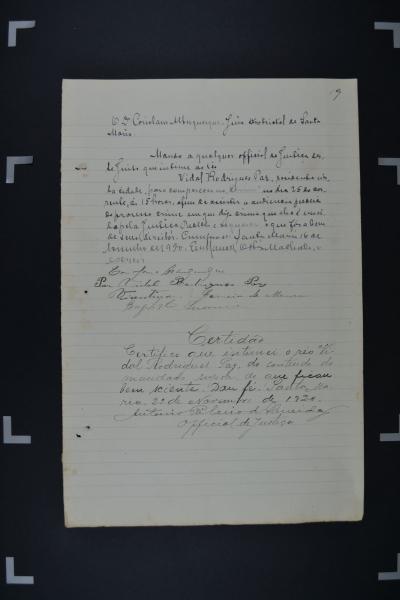 19
O Dr Coriolano Albuquerque, Juiz Districtal de Santa
Maria.
Mando a qualquer official de Justiça des-
te Juizo que intime ao réo
Vidal Rodrigues Paz, residente n'es-
ta cidade, para comparecer no dia 25 do cor-
rente, ás 15 horas, afim de assistir a audiencia
do processo crime em que diz crime que lhe é movi-
do pela Justiça Publica e requerer o que fôr a bem
de seu direito. Cumpra-se. Santa Maria, 16 de
Novembro de 1920. Eu, Machado, o
escrevi
Por Vidal Rodrigues Paz
Certidão
Certifico que intimei o réo Vi-
dal Rodrigues Paz, do conteúdo do
mandado supra do que ficou
bem sciente. Dou fé. Santa Ma-
ria. 22 de Novembro de 1920.
Antonio d Siqueira
Official de Justiça